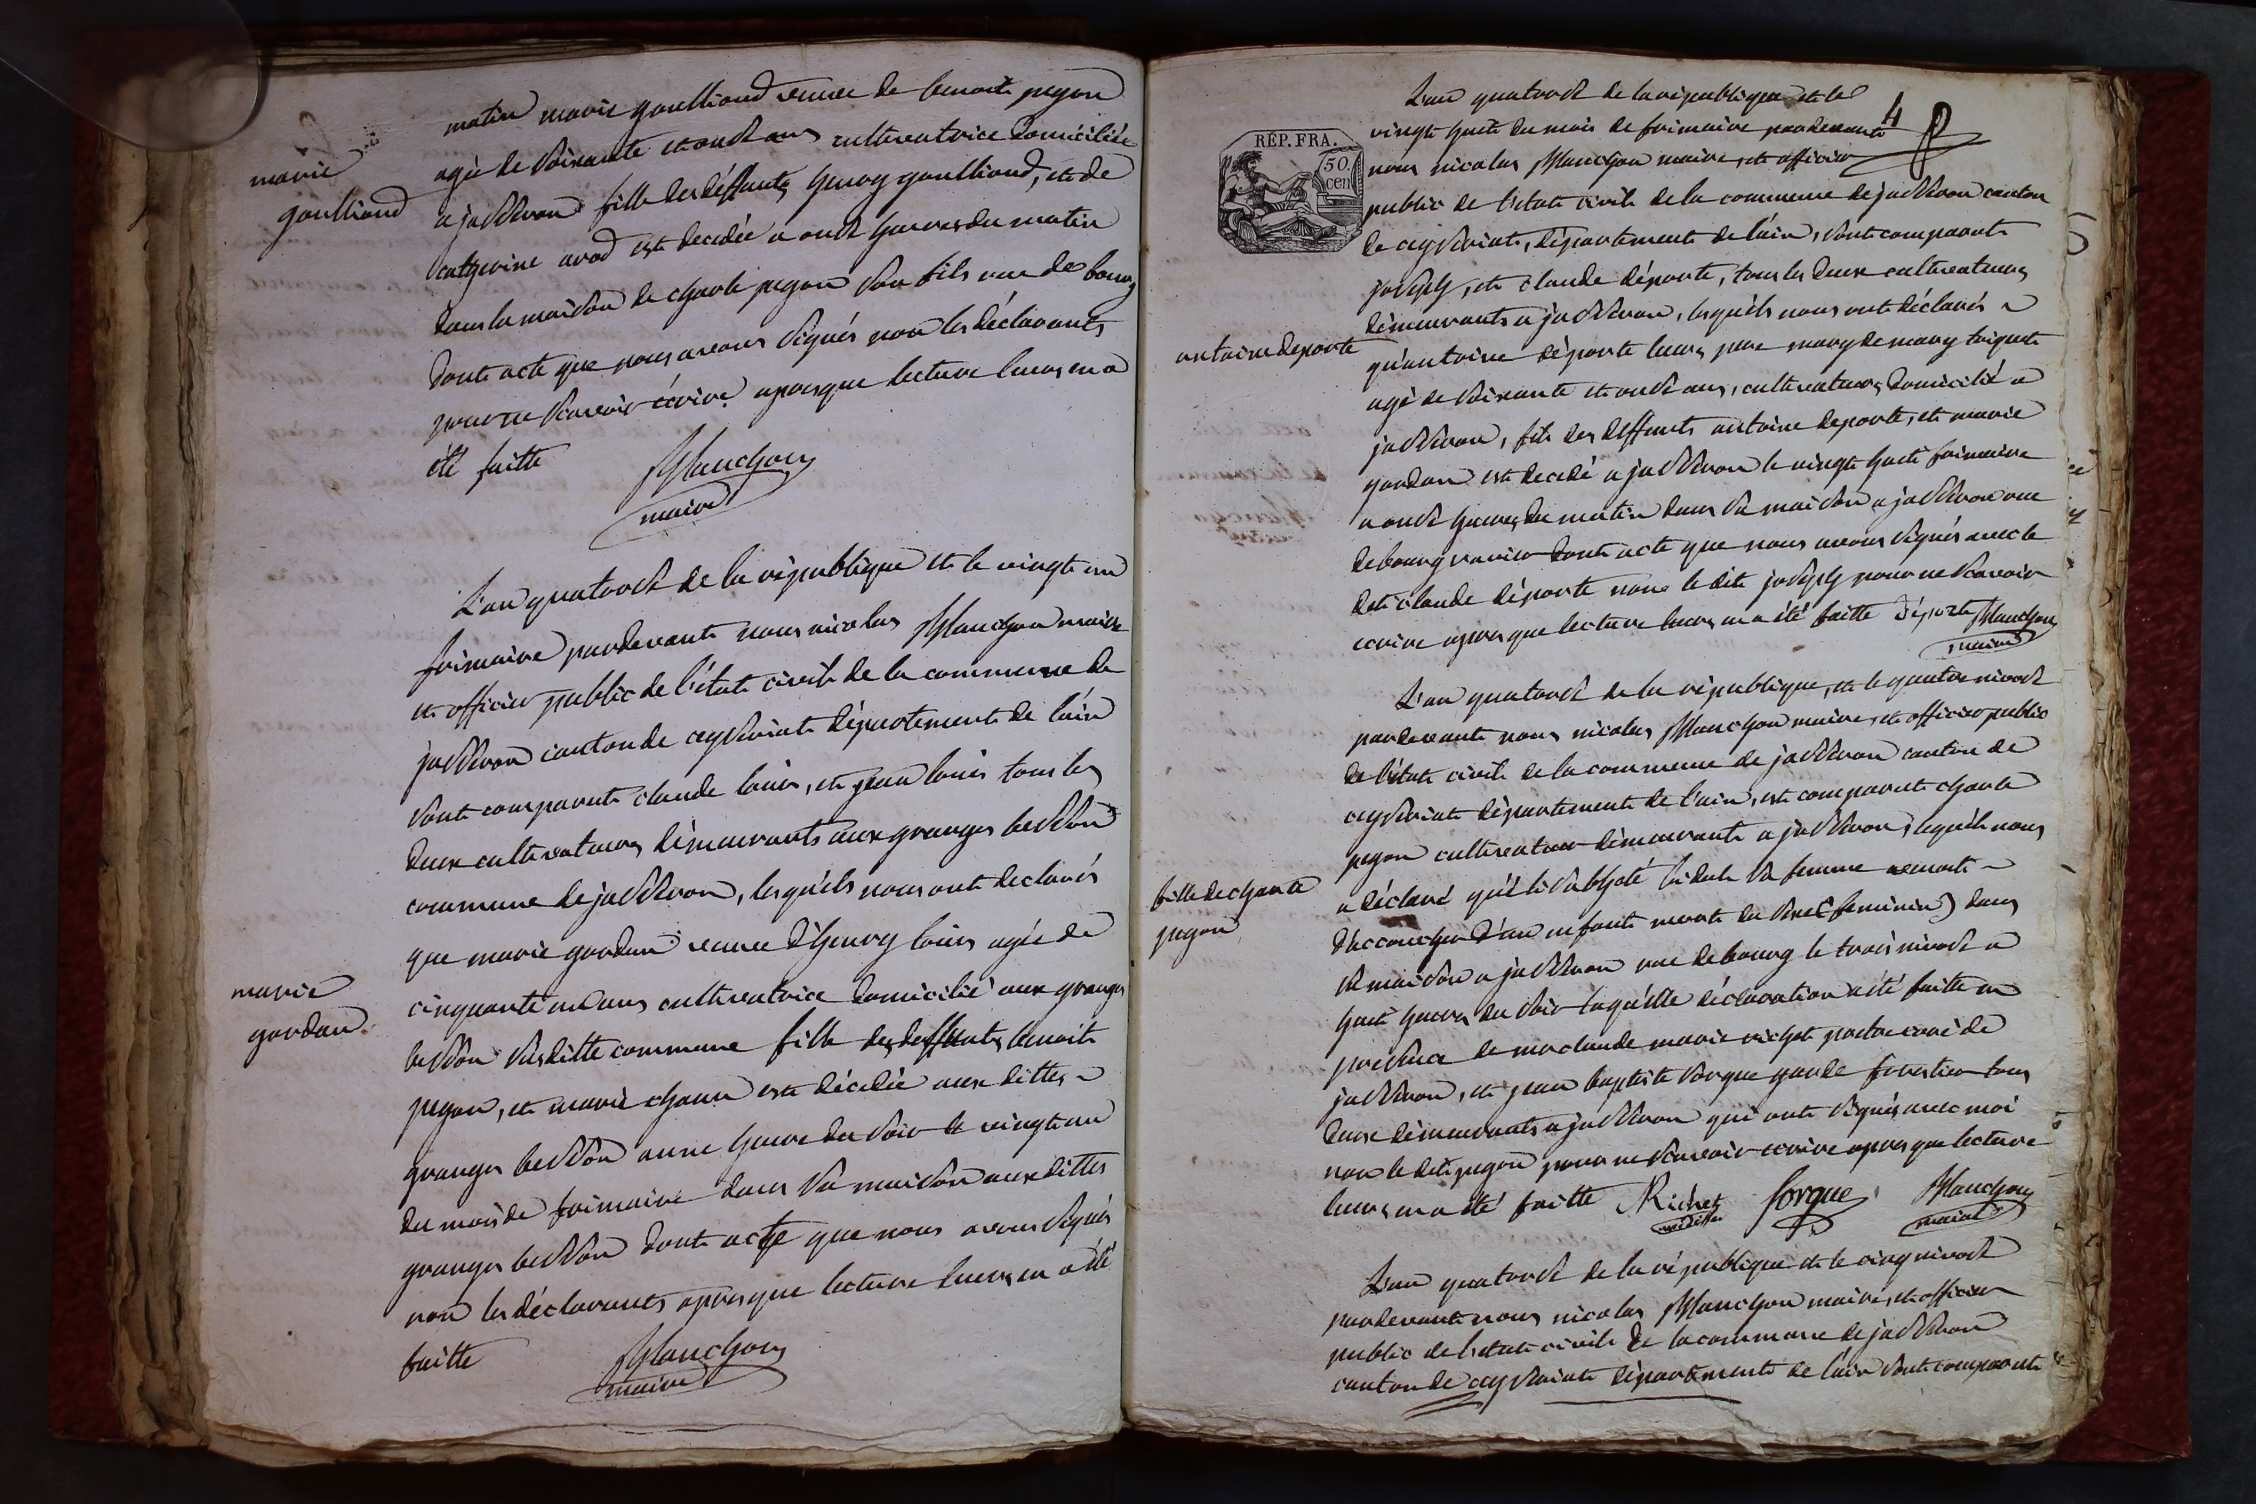 matin marie goulliaud veuve de benoit pegon
agée de soixante et onze ans cultivatrice domiciliée
marie
goulliaud
a jasseron fille des déffunts henry goulliaud, et de
catherine avad est decedée a onze heures du matin
dans la maison de charle pegon son fils rue de bourg
dont acte que nous avons signés non les déclarants
pour ne sçavoir écrire apres que lecture leurs en a
été faitte
Manchon
maire
L'an quatorze de la république et le vingt un
frimaire pardevant nous nicolas Manchon maire
et officier public de l'état civil de la commune de
jasseron canton de ceyseriat département de l'ain
sont comparut claude louis, et jean louis tous les
deux cultivateurs démeurants aux granges besson
commune de jasseron, lesquéls nous ont declarés
que marie gordan veuve d'henry louis agée de
marie
gordan
cinquante un ans cultivatrice domicilié aux granges
besson susditte commune fille des deffunts benoit
pegon, et marie chanu est décédée aux dittes
granges besson a une heure du soir le vingt un
du mois de frimaire dans sa maison aux dittes
granges besson dont acte que nous avons signés
non les déclarants apres que lecture leurs en a été
faitte
Manchon
maire
4
REP. FRA.
50.
cen
L'an quatorze de la république et le
vingt huit du mois de frimaire pardevant
nous nicolas Manchon maire, et officier
public de l'état civil de la commune de jasseron canton
de ceyseriat, département de l'ain, sont comparut
joseph, et claude déporte, tous les deux cultivateurs
démeurants a jasseron, lesquéls nous ont déclarés
antoine deporte
qu'antoine déporte leurs pere mary de mary
agé de soixante et onze ans, cultivateur, domicilié a
jasseron, fils des deffunts antoine deporte, et marie
gordan est decedé a jasseron le vingt huit frimaire
a onze heures du matin dans sa maison a jasseron rue
de bourg dont acte que nous avons signés avec le
dit claude déporte non le dit joseph pour ne sçavoir
ecrire apres que lecture leurs en a été faitte Déporte Manchon
maire
L'an quatorze de la république, et le quatre nivose
pardevant nous nicolas Manchon maire, et officier public
de l'état civil de la commune de jasseron canton de
ceyseriat département de l'ain, est comparut charle
pegon cultivateur démeurant a jasseron, lequél nous
fille de charle
pegon
a déclaré qu'élisabhete sa femme
d'accoucher d'un enfant mort du sexe feminin dans
sa maison a jasseron rue de bourg le trois nivose a
huit heures du soir laquélle déclaration a été faitte en
présence de mr claude marie richet pretre curé de
jasseron, et jean baptiste sorgue garde forestier tous
deux démeurants a jasseron qui ont signés avec moi
non le dit pegon pour ne sçavoir ecrire apres que lecture
leurs en a été faitte Richet sorgue Manchon
maire
L'an quatorze de la république et le cinq nivose
pardevant nous nicolas Manchon maire, et officier
public de l'état civil de la commune de jasseron
canton de ceyseriat département de l'ain sont comparut